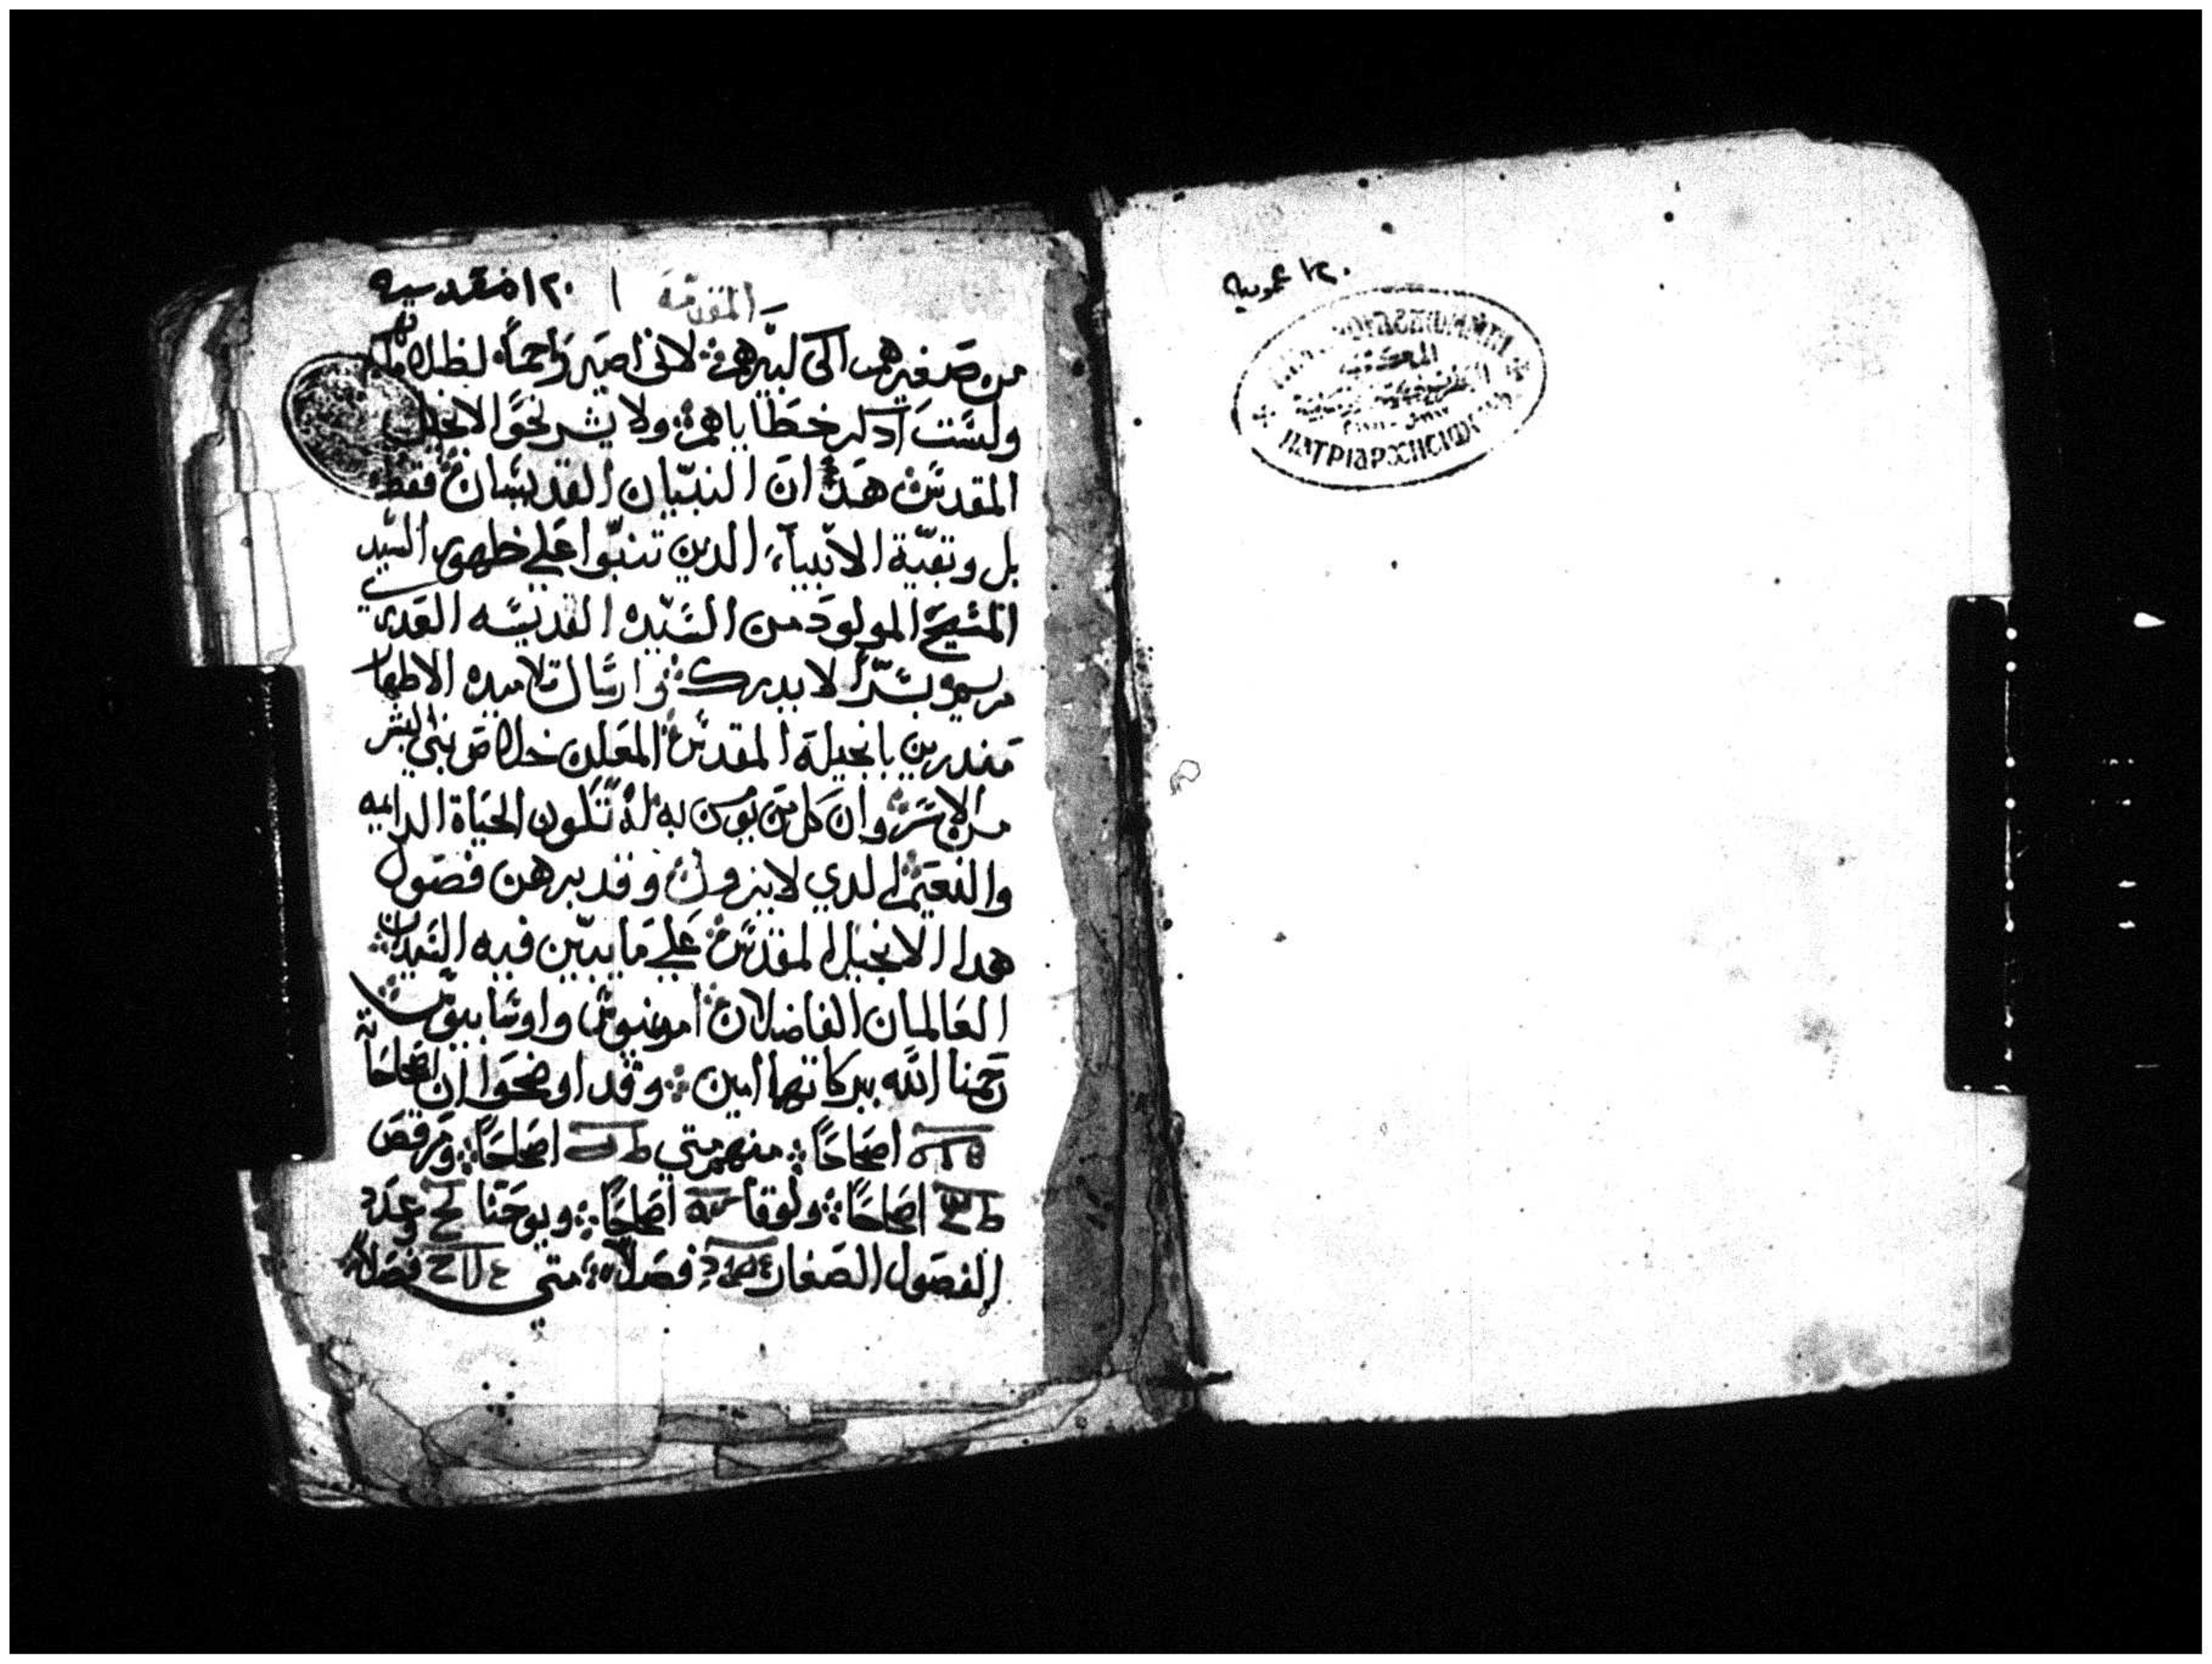 ١٢٠ عمومية
ΠΑΤΡΙΑΡΧΙΚΟΝ
المقدمة ١ ١٢٠ مقدسة
من صغيرهم الى كبيرهم لانى اصير راحماً لظلماتهم
ولست آدكر خطاياهم ولا يشر نحو الانجيل
المقدس هدا ان النبيان القديسان فقط
بل وبقية الانبيآء الدين تنبوا على ظهور السيد
المسيح المولود من السيده القديسه العدرى
مريم بسرّاً لا يدرك وارسال تلاميده الاطهار
مندرين بانجيله المقدس المعلن خلاص بنى البشر
من الاسر وان كل من يومن به له تكون الحياة الدايمه
والنعيم الدي لا يزول وقد برهن فصول
هدا الانجيل المقدس على ما يبين فيه السيدان
العالمان الفاضلان امونيوس واوسابيوس
رحمنا الله ببركاتهما امين وقد اوضحوا ان اصحاحاته
اصحاحاً منهم متي اصحاحاً ومرقص
اصحاحاً ولوقا اصحاحاً ويوحنا وعدد
الفصول الصغار فصلاً متي فصلاً